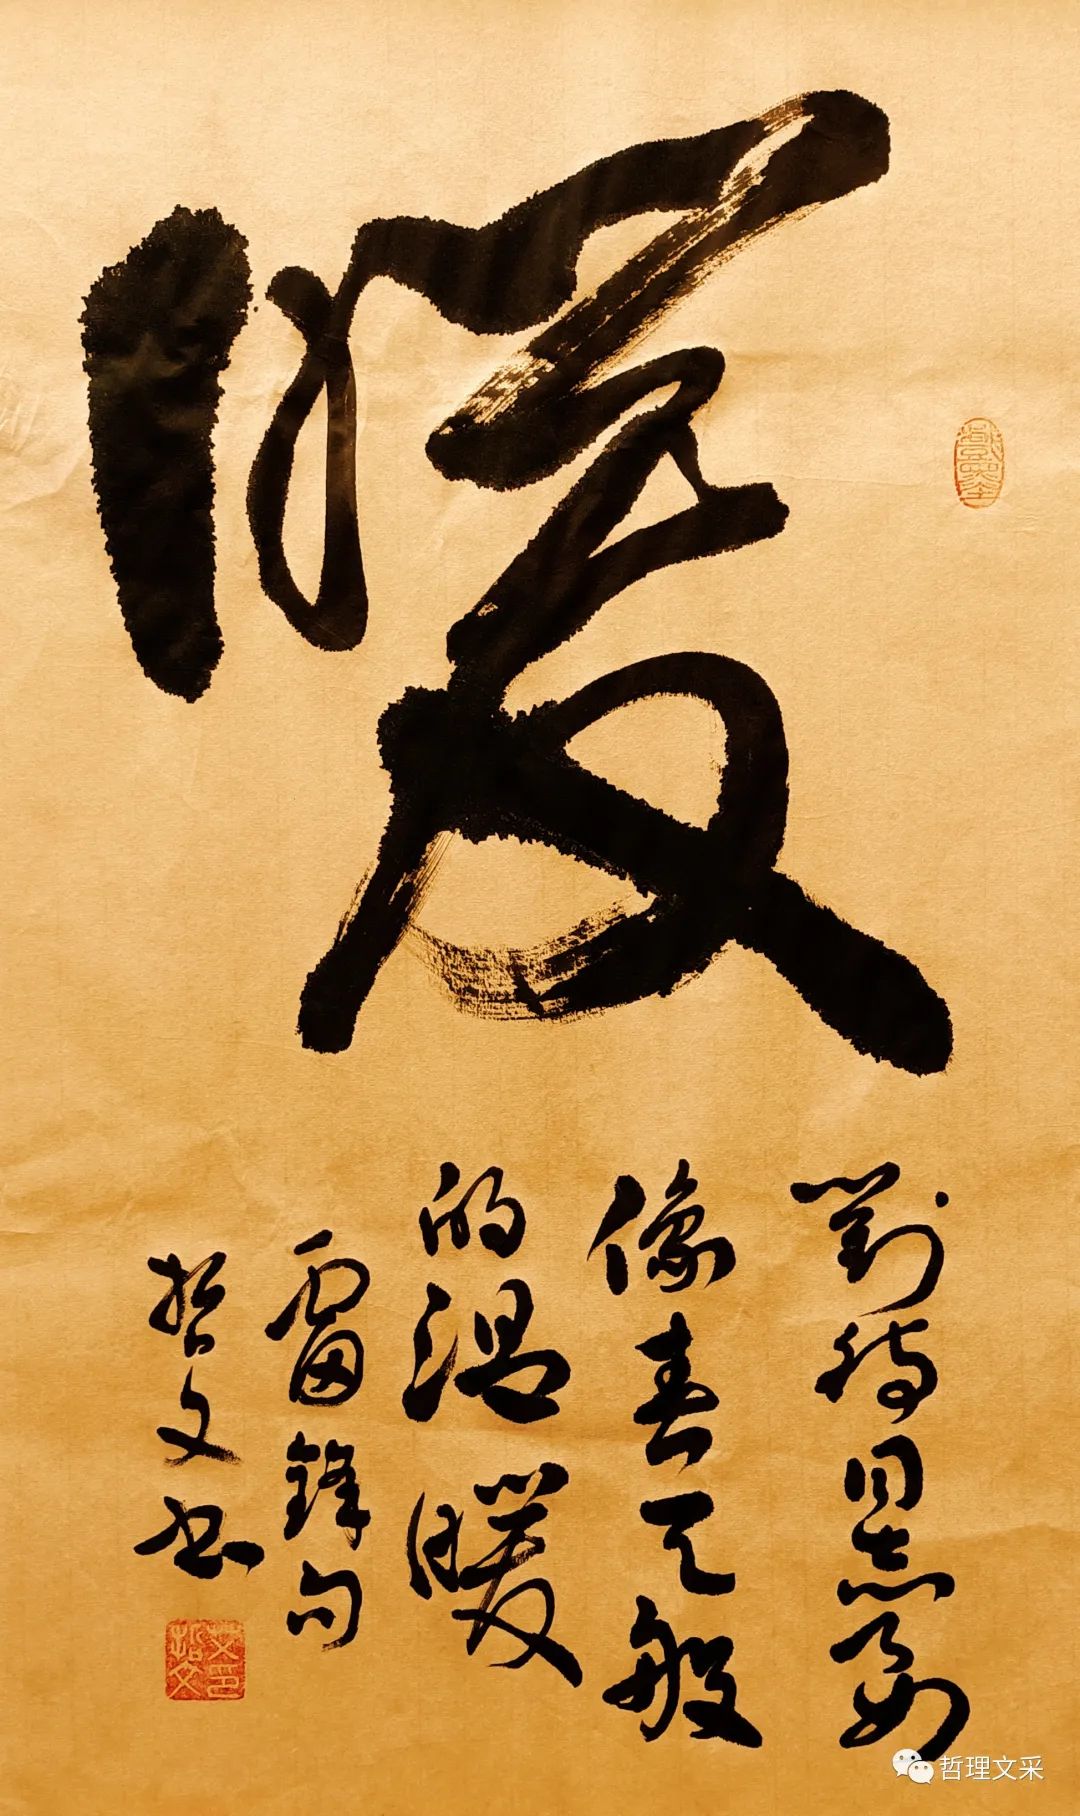 暖
對待同志要
像春天般
的温暖
雷鋒句
哲文书
哲理文采